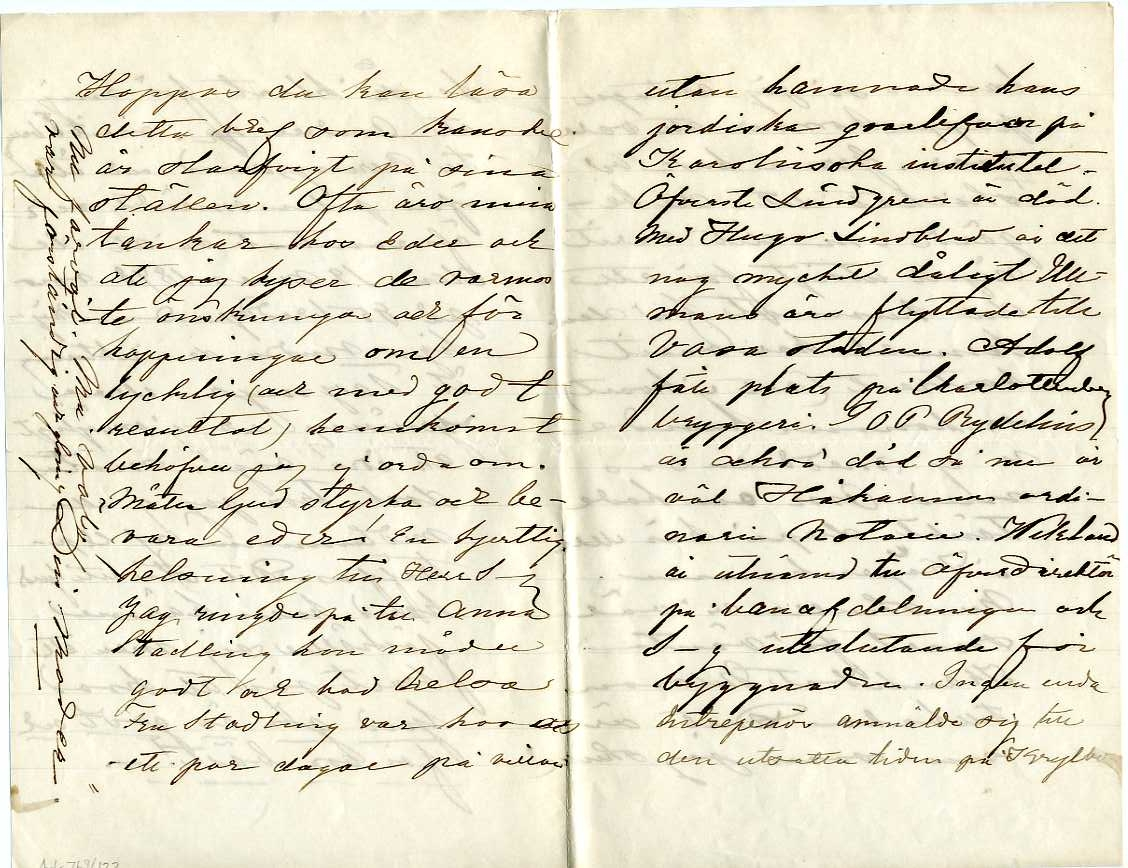 Hoppas du kan läsa
detta bref som kanske
är slarfvigt på sina
ställen. Ofta äro mina
tankar hos Eder och
att jag hyser de varmas
te önskningar och för
hoppningar om en
lycklig (och med godt
resultat) hemkomst
behöfver jag ej orda om.
Måtte Gud styrka och be-
vara eder. En hjertlig
helsning till Herr S–
Jag ringde på till Anna
Stadling hon mådde
godt och bad helsa
Fru Stadling var hos
ett par dagar på
Nu farväl. Nu
var förståndig och Din Moder.
utan hamnade hans
jordiska qvarlefvor på
Karolinska institutet.
Öfverste Lindgren är död.
Med Hugo Lindblad är det
nog mycket dåligt Ull-
mans äro flyttade till
Vasa staden. Adolf
fått plats på Charlottenberg
bryggeri. P Rydelius
är också död så nu är
väl Håkansson ordi-
narie Notarie. Wiklund
är utnämd till Öfverdirektör
på banafdelningen och
S–g uteslutande för
byggnader. Ingen enda
entreprenör anmälde sig till
den utsatta tiden på Krylbo